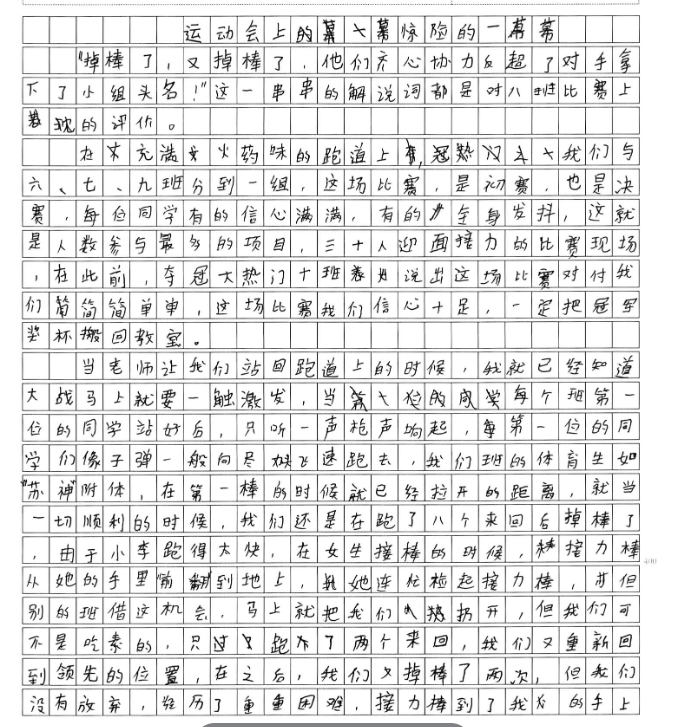 运动会上的惊险的一幕
“掉棒了,又掉棒了,他们齐心协力反超了对手拿
下了小组头名!”这一串串的解说词都是对八班比赛上
表现的评价。
在充满火药味的跑道上,我们与
六、七、九班分到一组,这场比赛,是初赛,也是决
赛,每位同学有的信心满满,有的全身发抖,这就
是人数参与最多的项目,三十人迎面接力的比赛现场
,在此前,夺冠大热门十班说出这场比赛对付我
们简简简单单,这场比赛我们信心十足,一定把冠军
奖杯搬回教室。
当老师让我们站回跑道上的时候,我就已经知道
大战马上就要一触激发,当每个班第一
位的同学站好后,只听一声枪声响起,每第一位的同
学们像子弹一般向尽头飞速跑去,我们班的体育生如
“苏神”附体,在第一棒的时候就已经拉开的距离,就当
一切顺利的时候,我们还是在跑了八个来回后掉棒了
,由于小李跑得太快,在女生接棒的时候,接力棒
从她的手里滑到地上,她连忙捡起接力棒,但
别的班借这机会,马上就把我们拐开,但我们可
不是吃素的,只过跑了两个来回,我们又重新回
到领先的位置,在之后,我们又掉棒了两次,但我们
没有放弃,经历了重重困难,接力棒到了我们的手上
400